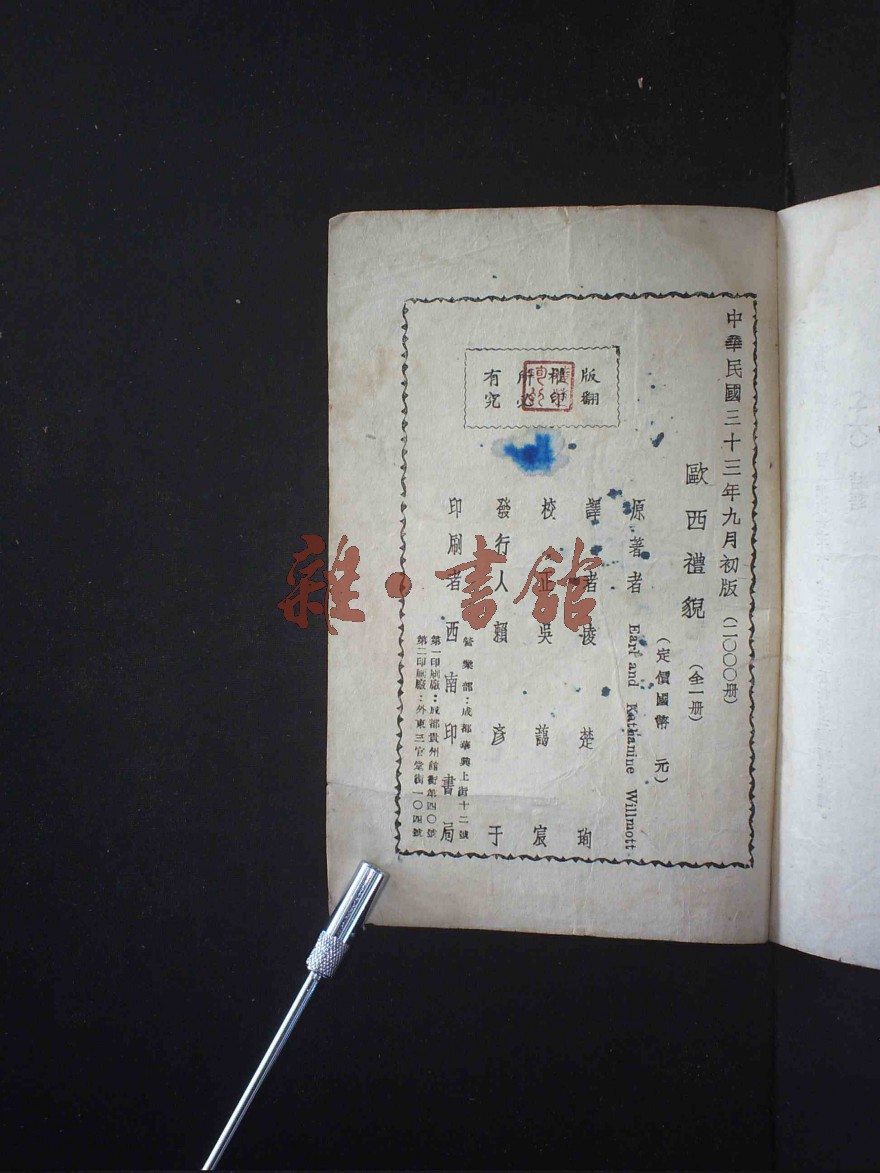 中華民國三十三年九月初版（二〇〇〇册）
歐西禮貌（全一册）
（定價國幣　元）
原著者　Earl and Kathanine Willmott
譯者　凌楚珣
校正　吳藹宸
發行人　賴彥于
印刷者　西南印書局
營業部：成都華興上街十二號
第一印刷廠：成都貴州館街第四〇號
第二印刷廠：外東三官堂街一〇四號
版權所有
翻印必究
雜·書館